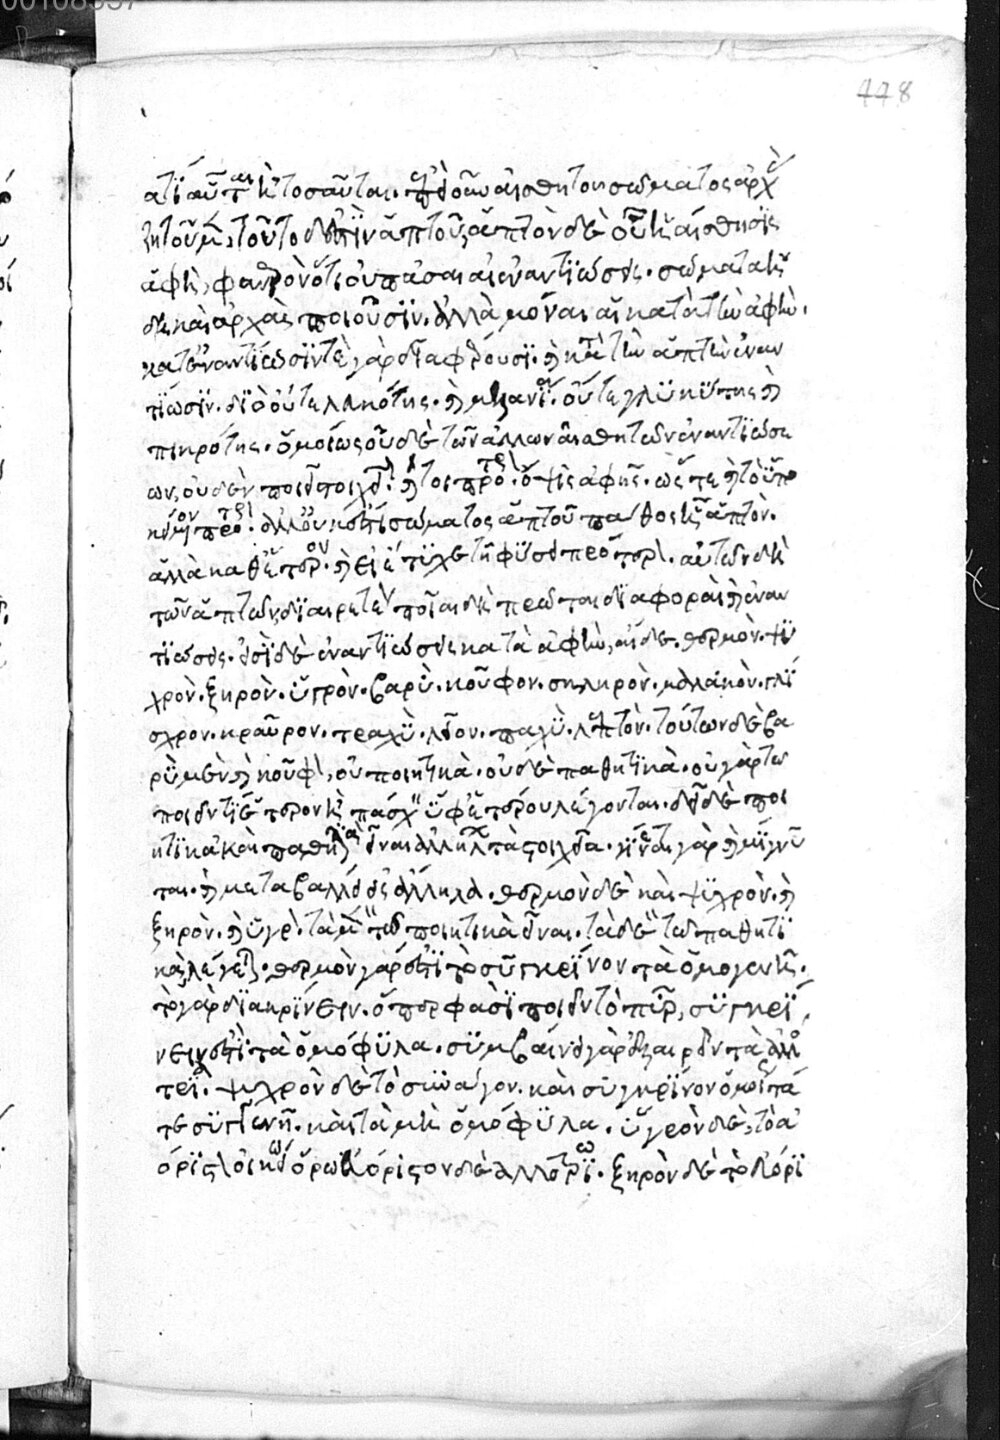 448
ατί αὗται κ τοσαῦται. ἐπεὶ οὖν αἰσθητοῦ σώματος ἀρχὰς
ζητοῦμεν, τοῦτο δ' ἐστὶν ἁπτοῦ, ἁπτὸν δὲ οὗ ἡ αἴσθησις
ἁφή, φανερὸν ὅτι οὐ πᾶσαι αἱ ἐναντιώσεις. σώματος εἴ
δη καὶ ἀρχὰς ποιοῦσιν. ἀλλὰ μόναι αἱ κατὰ τὴν ἁφήν.
κατ' ἐναντίωσίν τε γὰρ διαφέρουσι. καὶ κατὰ τὴν ἁπτὴν ἐναν
τίωσιν. διὸ οὔτε λευκότης. καὶ μελανία. οὔτε γλυκύτης καὶ
πικρότης. ὁμοίως οὐδὲ τῶν ἄλλων αἰσθητῶν ἐναντιώσε
ων οὐδὲν ποιεῖ στοιχεῖον. καίτοι πρότερον ὄψις ἁφῆς. ὥστε καὶ τὸ ὑπο
κείμενον πρότερον. ἀλλ' οὐκ ἔστι σώματος ἁπτοῦ πάθος ᾗ ἁπτὸν.
ἀλλὰ καθ' ἕτερον. καὶ εἰ ἔτυχε τῇ φύσει πρότερον. αὐτῶν δὴ
τῶν ἁπτῶν διαιρετέον ποῖαι δὴ πρῶται διαφοραὶ καὶ ἐναν
τιώσεις. εἰσὶ δὲ ἐναντιώσεις κατὰ ἁφὴν, αἵδε. θερμὸν. ψυ
χρὸν. ξηρὸν. ὑγρὸν. βαρὺ. κοῦφον. σκληρὸν. μαλακὸν. γλί
σχρον. κραῦρον. τραχὺ. λεῖον. παχὺ. λεπτὸν. τούτων δὲ βα
ρὺ μὲν καὶ κοῦφον, οὐ ποιητικὰ. οὐδὲ παθητικὰ. οὐ γὰρ τῷ
ποιεῖν τι ἕτερον ἢ πάσχειν ὑφ' ἑτέρου λέγονται. δεῖ δὲ ποι
ητικὰ καὶ παθητικὰ εἶναι ἀλλήλων τὰ στοιχεῖα. μίγνυται γὰρ καὶ μίγνυν
ται. καὶ μεταβάλλει εἰς ἄλληλα. θερμὸν δὲ καὶ ψυχρὸν. καὶ
ξηρὸν. καὶ ὑγρὸν. τὰ μὲν τῷ ποιητικὰ εἶναι. τὰ δὲ τῷ παθητι
κὰ λέγεται. θερμὸν γάρ ἐστι τὸ συγκρῖνον τὰ ὁμογενῆ.
τὸ γὰρ διακρίνειν. ὅπερ φασὶ ποιεῖν τὸ πῦρ, συγκρί
νειν ἐστὶ τὰ ὁμόφυλα. συμβαίνει γὰρ ἐξαιρεῖν τὰ ἀλλό
τρια. ψυχρὸν δὲ τὸ συνάγον. καὶ συγκρῖνον ὁμοίως τά
τε συγγενῆ. καὶ τὰ μὴ ὁμόφυλα. ὑγρὸν δὲ, τὸ ἀ
όριστον οἰκείῳ ὅρῳ εὐόριστον δὲ ἀλλοτρίῳ. ξηρὸν δὲ τὸ εὐόρι